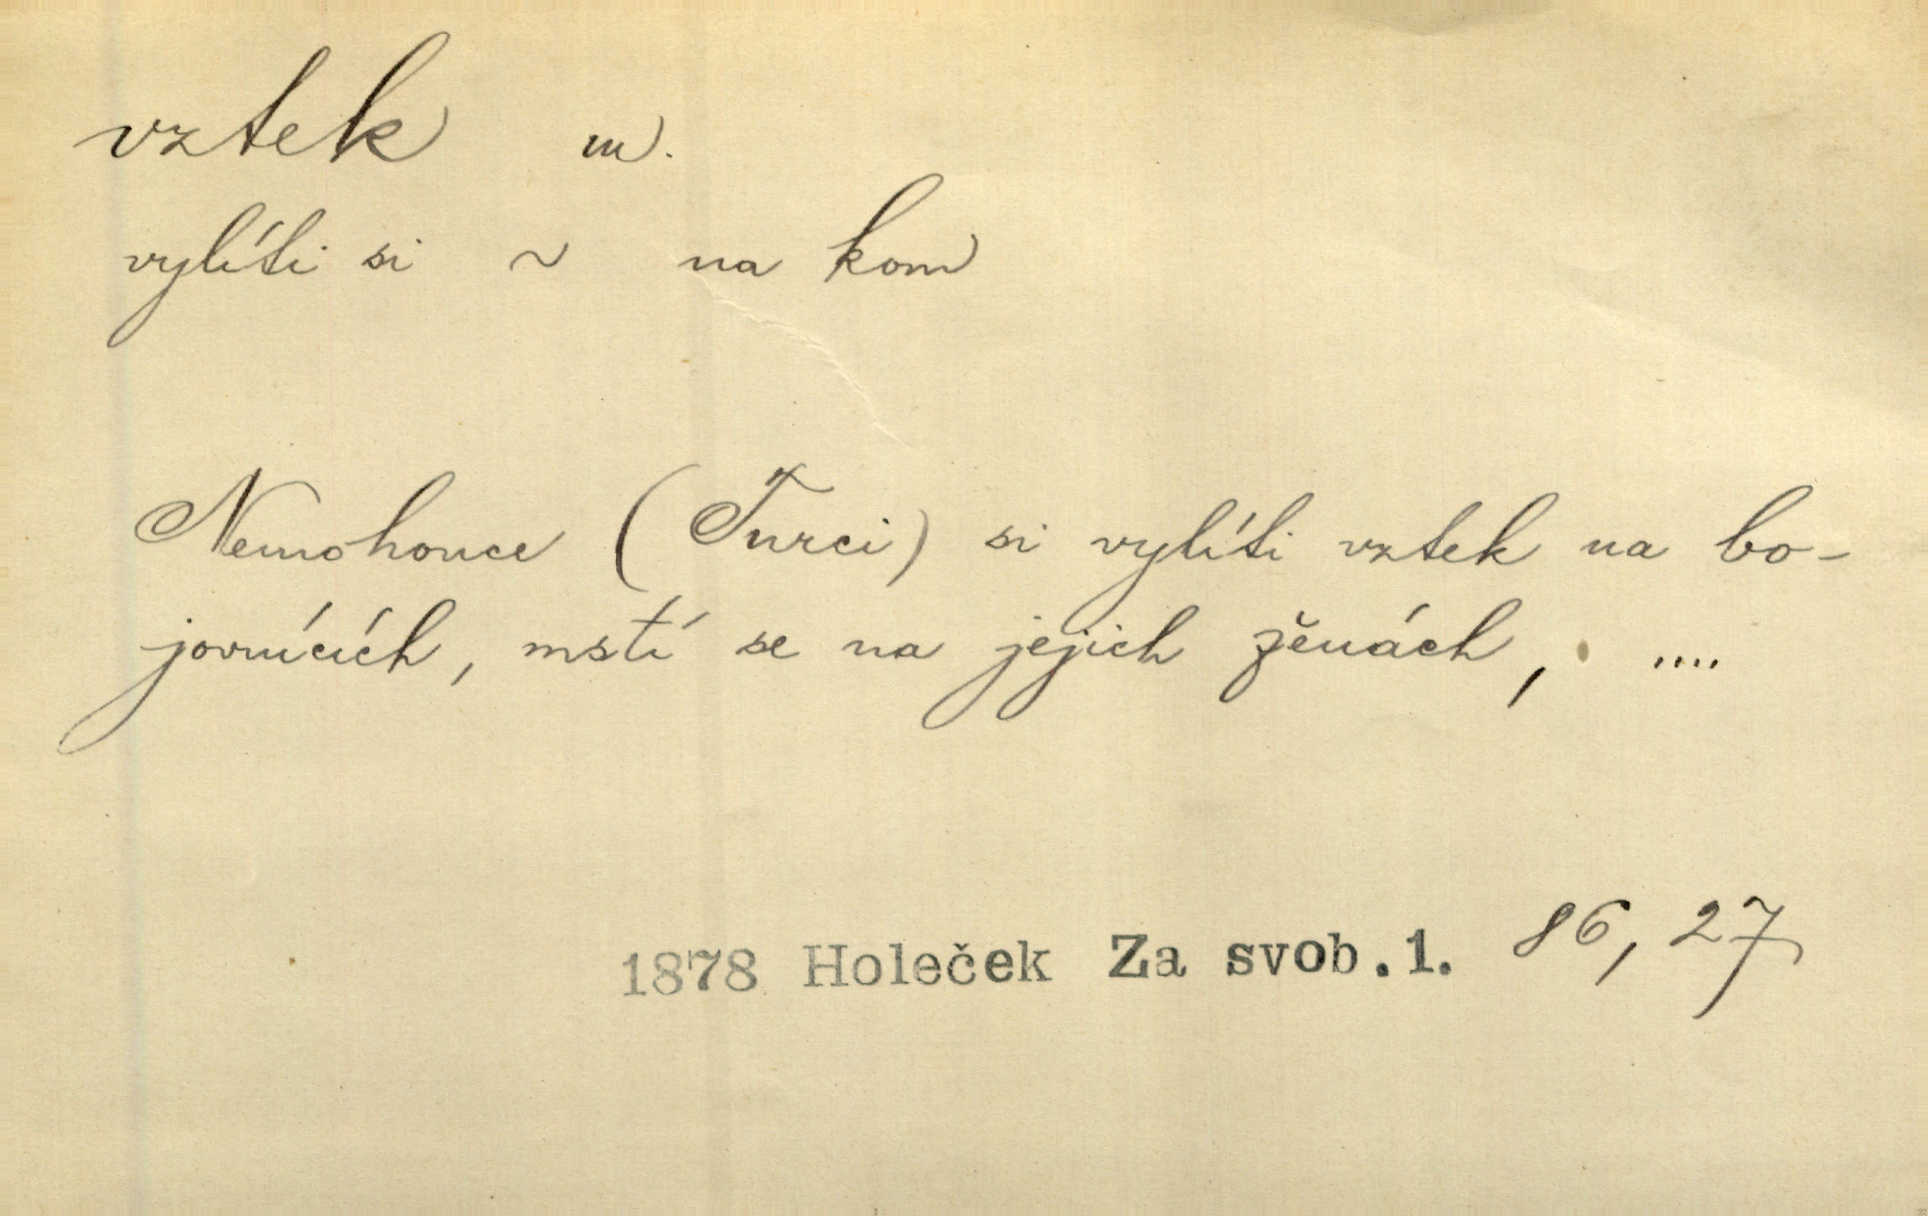 vztek m.
vylíti si ~ na kom
Nemohouce (Turci) si vylíti vztek na bo-
jovnících, mstí se na jejich ženách, ....
1878 Holeček Za svob.1. 86, 27